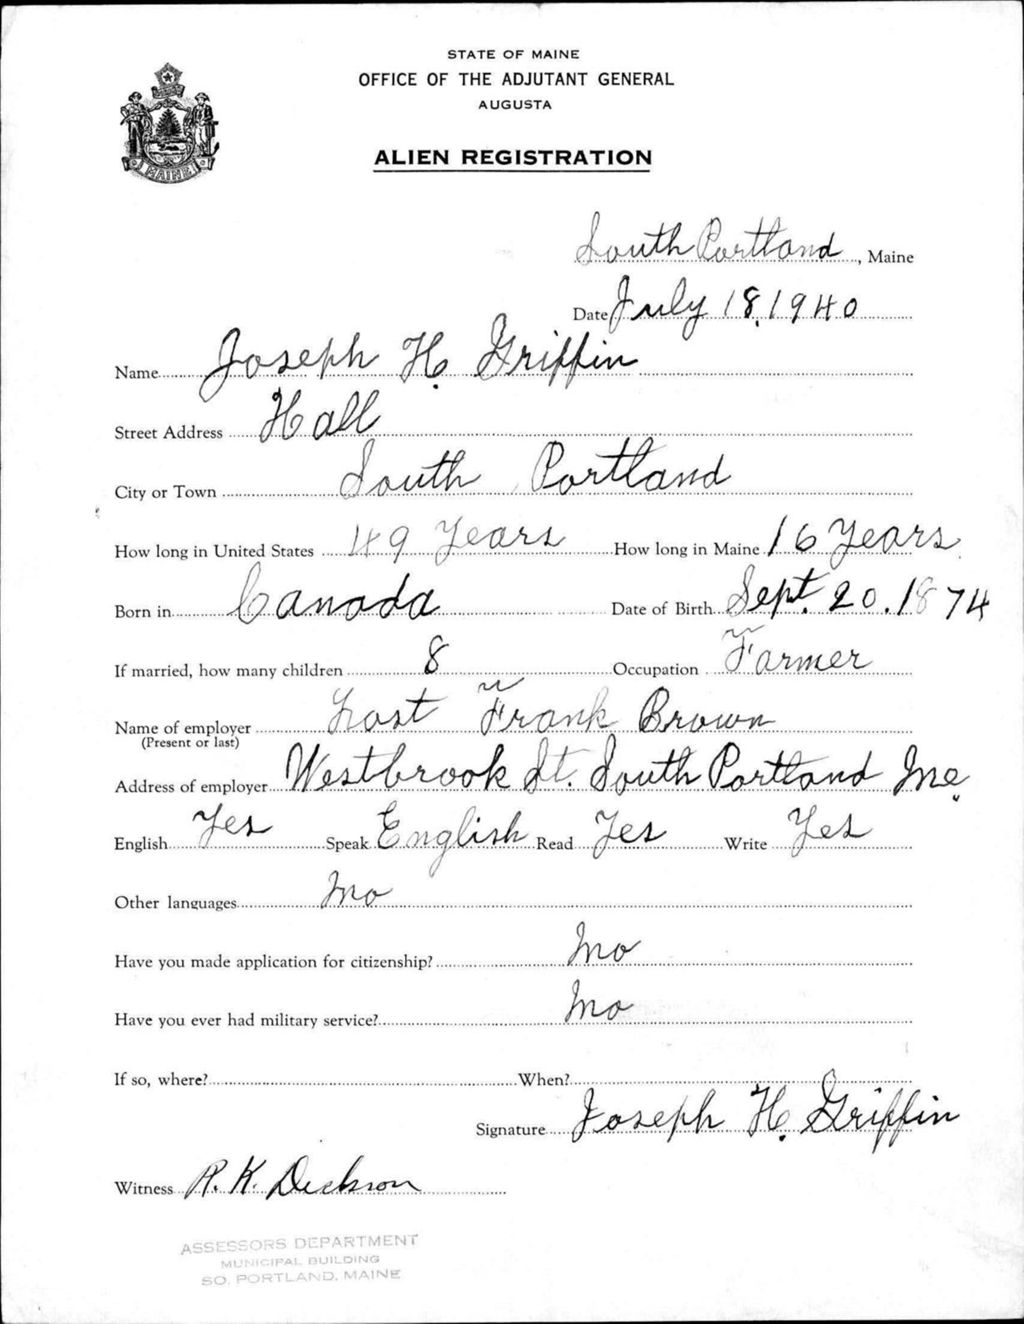 STATE OF MAINE
OFFICE OF THE ADJUTANT GENERAL
AUGUSTA
ALIEN REGISTRATION
MAINE
South Portland, Maine
Date July 18, 1940
Name Joseph H. Griffin
Street Address Hall
City or Town South Portland
How long in United States 49 Years How long in Maine 16 Years
Born in Canada Date of Birth Sept. 20. 1874
If married, how many children 8 Occupation Farmer
Name of employer Last Frank Brown
(Present or last)
Address of employer Westbrook St. South Portland Me.
English Yes Speak English Read Yes Write Yes
Other languages No
Have you made application for citizenship? No
Have you ever had military service? No
If so, where? When?
Signature Joseph H. Griffin
Witness R. K. Dickson
ASSESSORS DEPARTMENT
MUNICIPAL BUILDING
SO. PORTLAND, MAINE